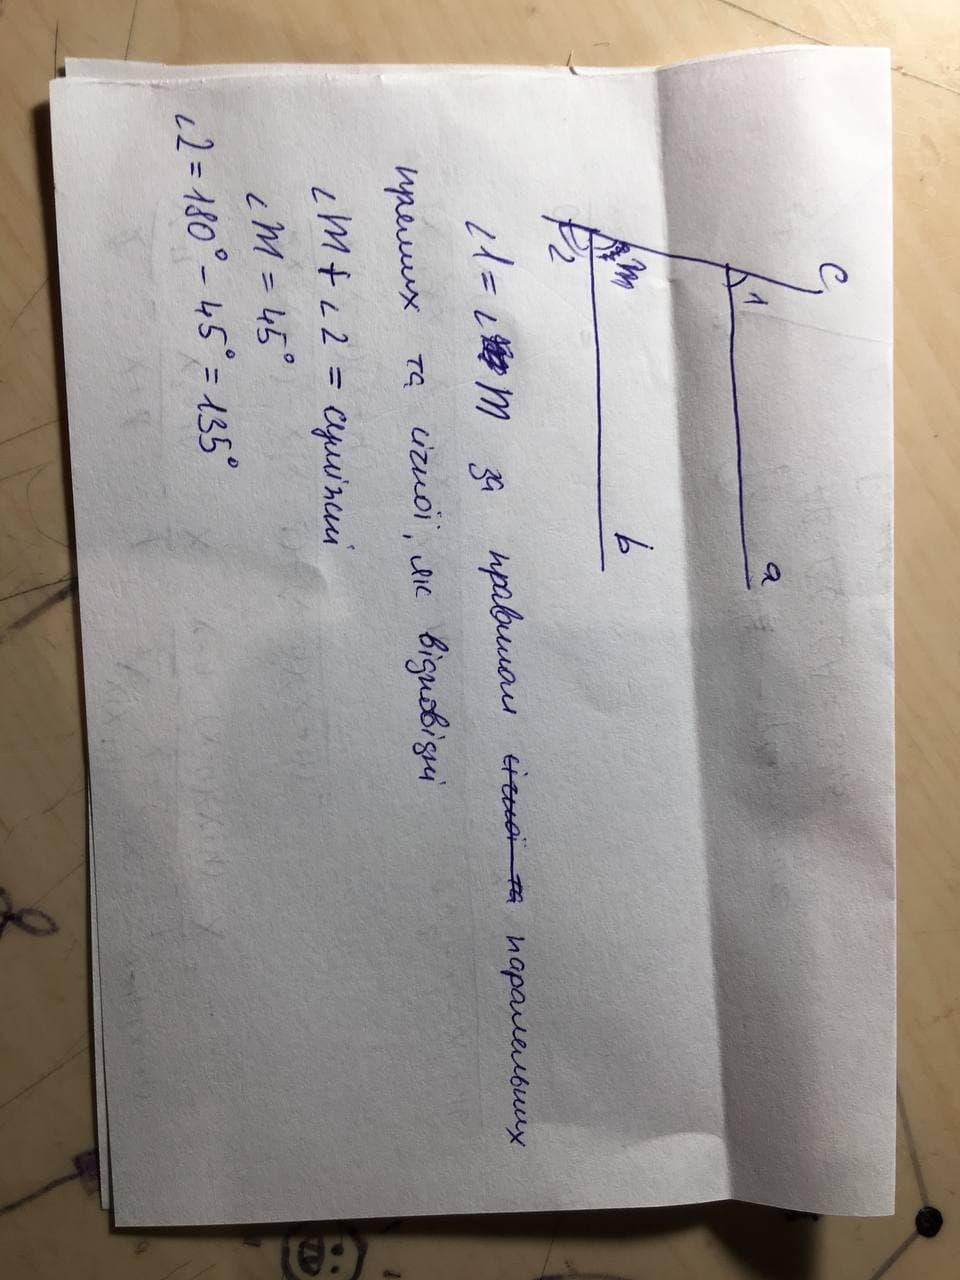 C
1
a
m
2
b
∠1 = ∠M за правилом січної та паралельних
прямих та січної, як відповідні
∠M + ∠2 = суміжні
∠M = 45°
∠2 = 180° - 45° = 135°